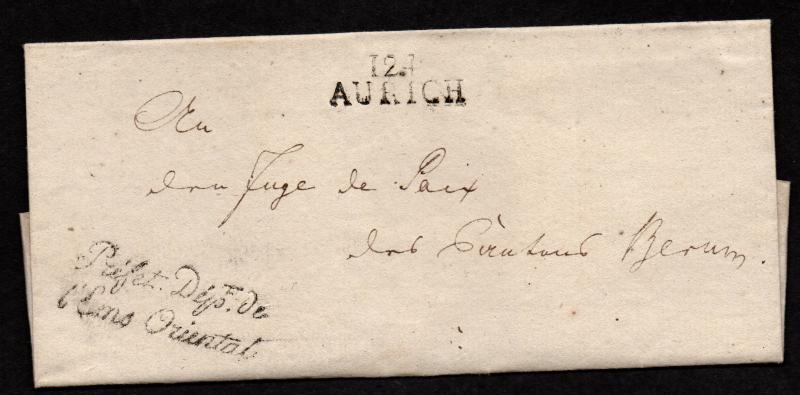 124
AURICH
An
den Juge de Paix
des Cantons Berum.
Préfet. Dép.t de
l'Ems Oriental